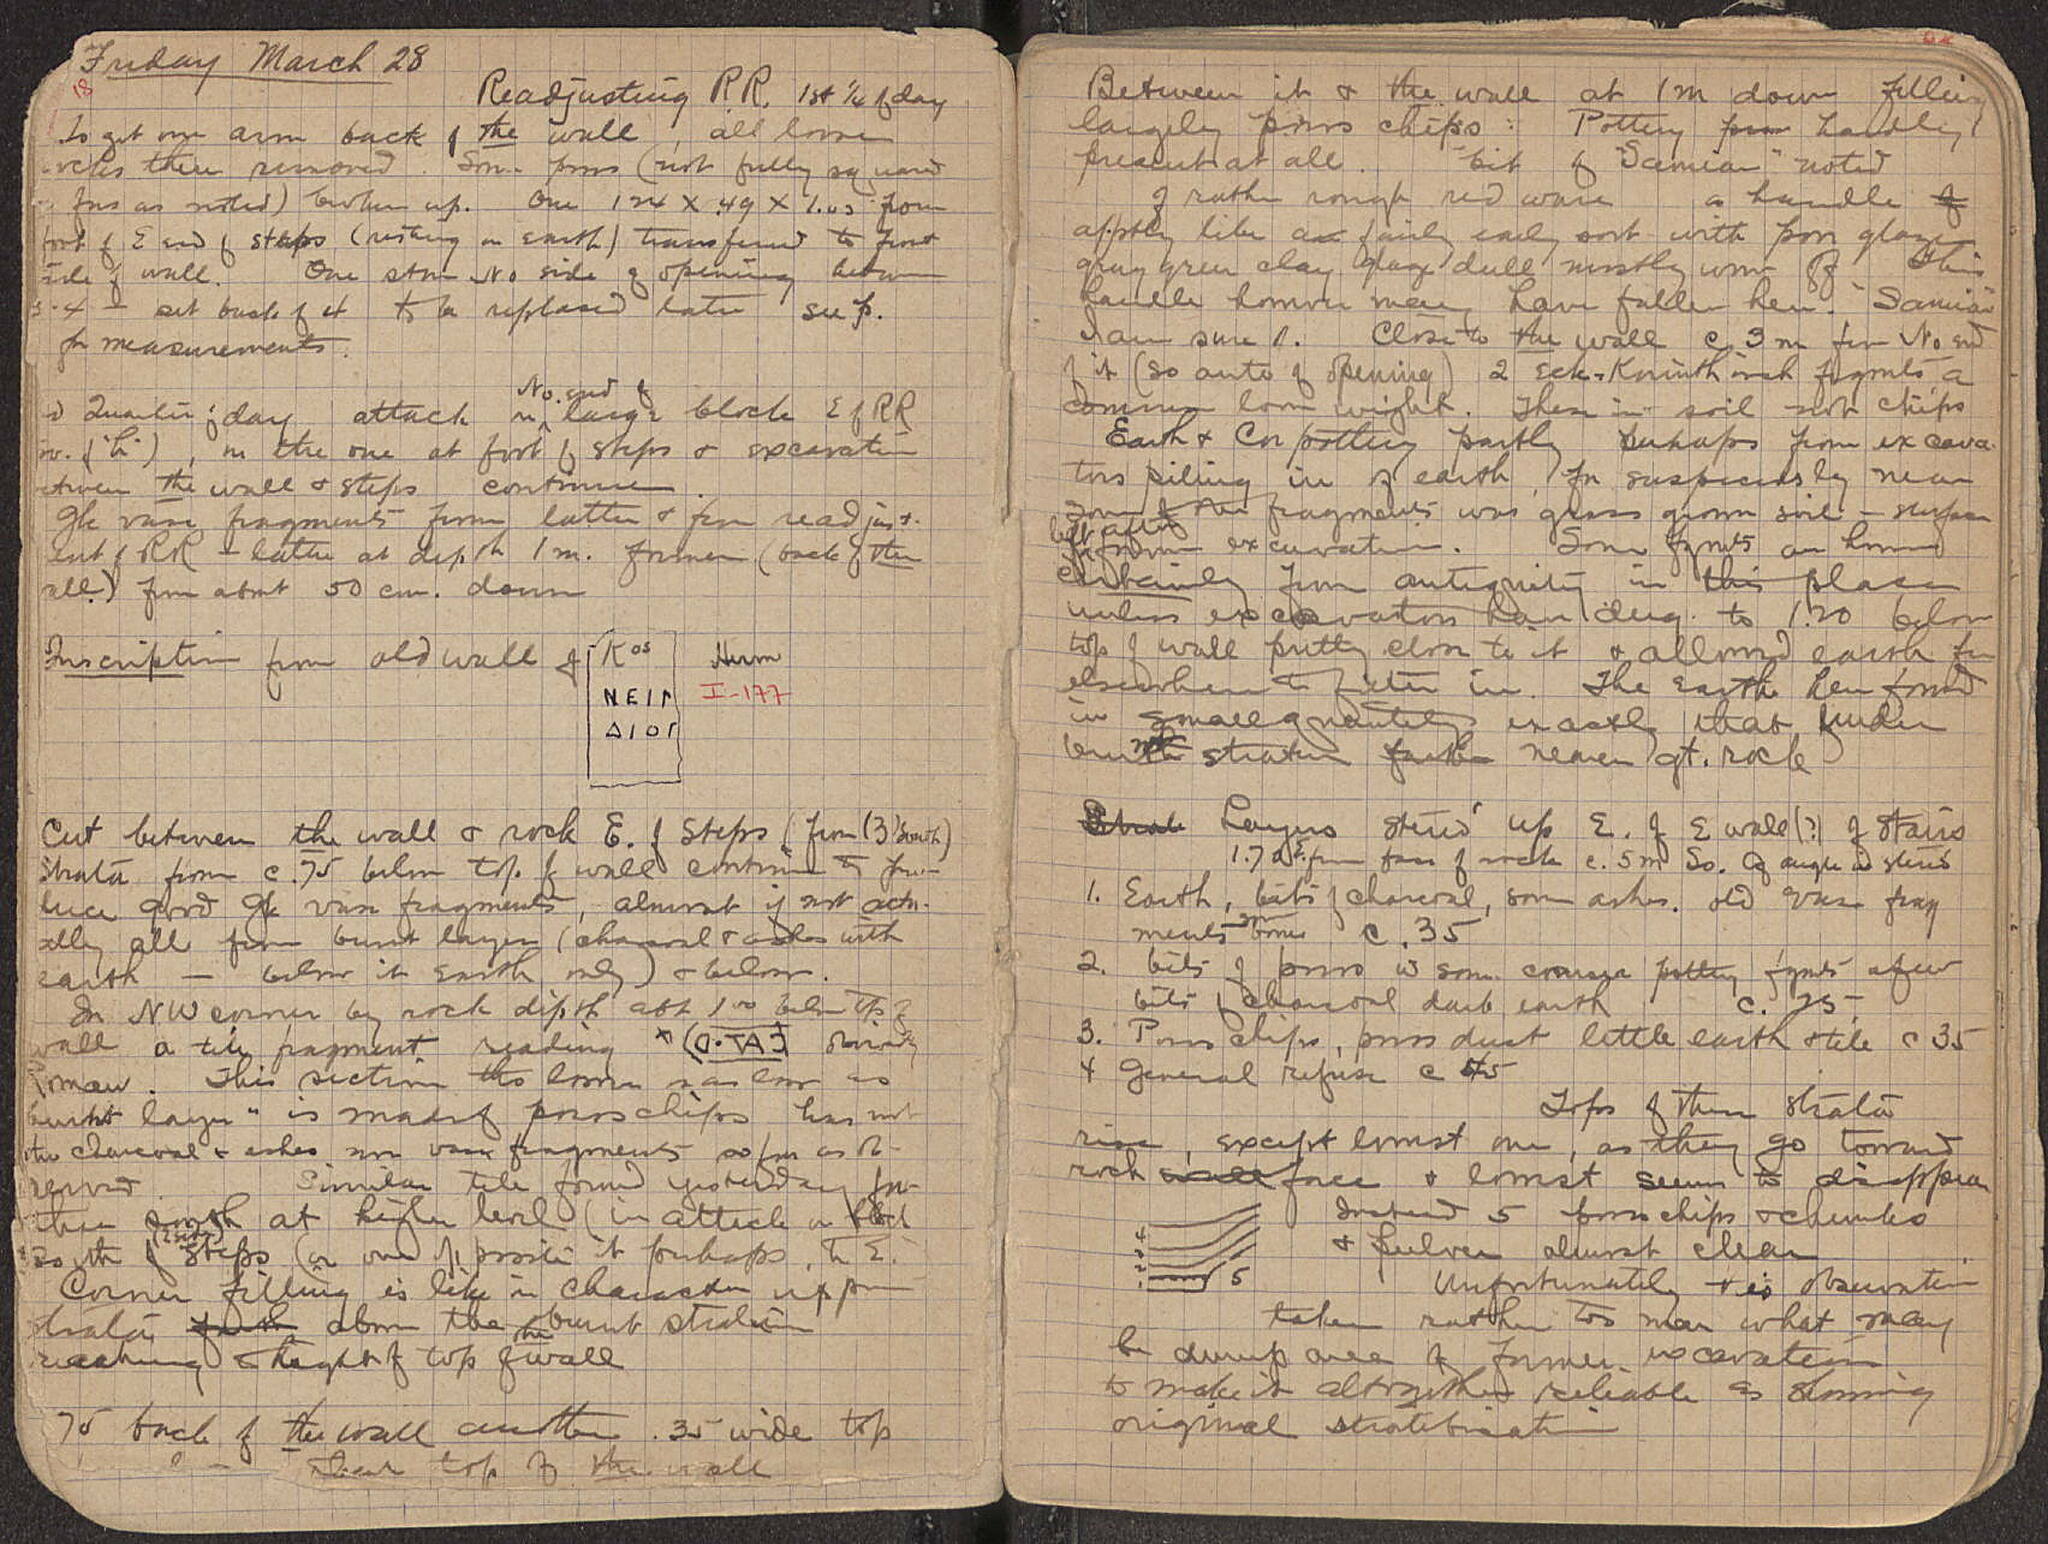 Friday March 28
18
Readjusting R.R. 1st 1/4 of day
to get one arm back of the wall, all loose
then removed. Some poros (not fully squared
as noted) broken up. One 1.24 X .49 X 1.03 from
foot of E end of steps (resting on earth) transferred to front
side of wall. One stone No side of opening between
3-4 - set back of it to be replaced later see p.
for measurements.
No. end of
Quarter of day attack on large block E of RR
, on the one at foot of steps & excavation
between the wall & steps continue.
Gk vase fragments from latter & from readjust-
ment of RR - latter at depth 1 m. former (back of the
wall) from about 50 cm. down
Inscription from old wall of
Kos
ΝΕΙΡ
ΔΙΟΓ
Herm
I-177
Cut between the wall & rock E. of Steps (from (3) South)
Strata from c. .75 below top of wall continue to pro-
duce good Gk vase fragments, almost if not actu-
ally all from burnt layer (charcoal & ashes with
earth - below it earth only) & below.
In NW corner by rock depth abt 1.00 below top of
wall a tile fragment reading obviously
Roman. This section tho loose as low as
"burnt layer" is made of poros chips has not
the charcoal & ashes nor vase fragments so far as ob-
served. Similar tile found yesterday fur-
ther south at higher level (in attack on block
South of steps (or one opposite it perhaps, to E.
(East)
Corner filling is like in character upper
strata above the burnt stratum
reaching height of top of the wall
75 back of the wall another .35 wide top
near top of the wall
Between it & the wall at 1 m down filling
largely poros chips: Pottery hardly
present at all. bit of "Samian" noted
of rather rough red ware a handle
apptly like a fairly early sort with poor glaze
gray green clay glaze dull mostly worn off This
handle however may have fallen here. "Samian"
I am sure of. Close to the wall c 3 m from No end
of it (so outs of opening) 2 Eck-Korinthisch fragmts a
common loom weight. These in soil not chips
Earth & Cor pottery partly perhaps from excava-
tors piling in of earth, for suspiciously near
some of the fragments was grass grown soil - surface
left after
former excavation. Some fgmts are however
certainly from antiquity in this place
unless excavators have dug to 1.20 below
top of wall pretty close to it & allowed earth from
elsewhere to filter in. The earth here found
in small quantity exactly that under
burnt stratum nearer gt. rock
Layers stereo'd up E. of E wall (?) of Stairs
1.70 E. from face of rock c. 5 m So. of angle
1. Earth, bits of charcoal, some ashes. old vase frag
ments some bones c .35
2. bits of poros w some coarse pottery fgmts a few
bits of charcoal dark earth c. .25
3. Poros chips, poros dust little earth & tile c 35
4 General refuse c 45
Tops of these strata
rise, except lowest one, as they go toward
rock face & lowest seems to disappear
Instead 5 poros chips & chunks
& pulver almost clean
4
3
2
1
5
Unfortunately this observation
taken rather too near what may
be dump area of former excavation
to make it altogether reliable as showing
original stratification